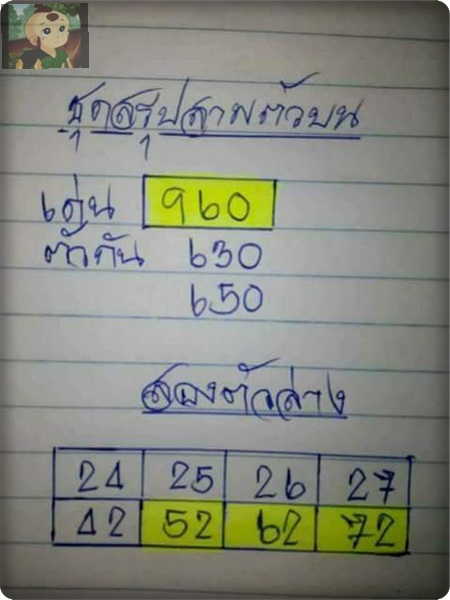 ชุดสรุปสามตัวบน
เด่น 960
ตัวกัน 630
650
สองตัวล่าง
24 25 26 27
42 52 62 72